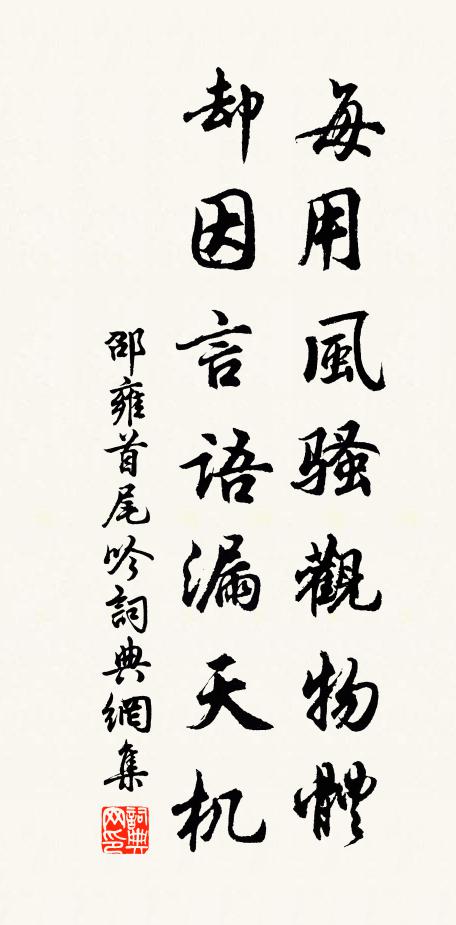 每用風騷觀物體
却因言語漏天机
邵雍首尾吟詞典網集
詞典网印